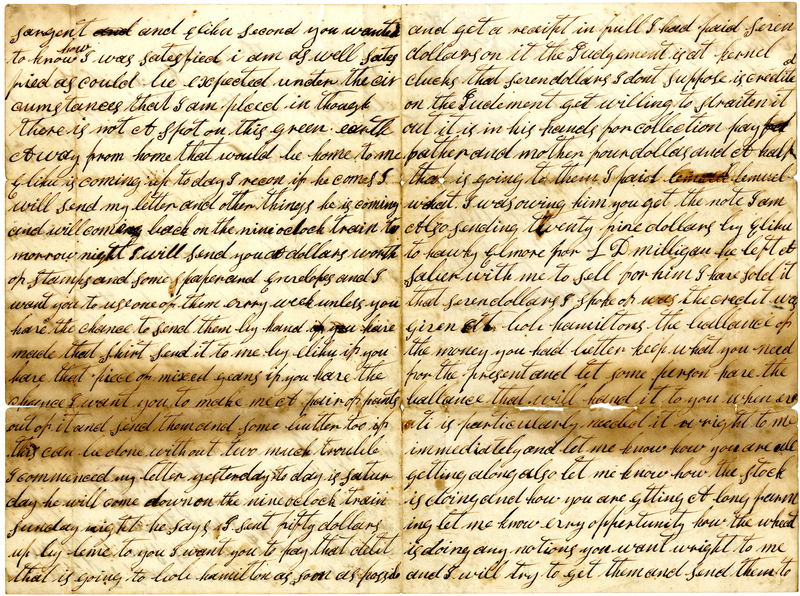 sargent and and Elihu second you wanted
to know how I was satesfied i am as well sates
fied as could be expected under the cir
cumstances that I am placed in though
there is not A spot on this green earth
Away from home that would be home to me
Elihu is coming up to day I recon if he comes I
will send my letter and other things he is coming
and will come back on the nini oclock train to
morrow night I will send you A dollars worth
of stamps and some paper and Envelopes and I
want you to use one of them evry week unless you
have the chance to send them by hand if you have
made that shirt send it to me by Elihu if you
have that piece of mixed jeans if you have the
chance I want you to make me A pair of pants
out of it and send them and some butter too if
this can be done without two much trouble
I commenced my letter yesterday to day is satur
day he will come down on the nine oclock train
sunday night he says I sent fifty dollars
up by to you I want you to pay that debt
that is going to hamilton as soon as possib
and get a receipt in full I had paid seven
dollars on it the Judgement is at kernel
clucks that seven dollars I dont suppose is credite d
on the Judement get willing to straiten it
out it is in his hands for collection pay
father and mother four dollas and A half
that is going to them I paid lemuel
what I was owing him you get the note I am
Also sending twenty five dollars by Elihu
to hawky Elmore for L D. milligan he left A
salier with me to sell for him I have sold it
that seven dollars I spoke of was the credit was
given at hamiltons the ballance of
the money you had better keep what you need
for the present and let some person have the
ballance that will hand it to you when ever
it is particularly needed it wright to me
immediately and let me know how you are all
getting along also let me know how the stock
is doing and how you are gtting A long farm
ing let me know evry oppertunity how the wheat
is doing any notions you want wright to me
and I will try to get them and send them to